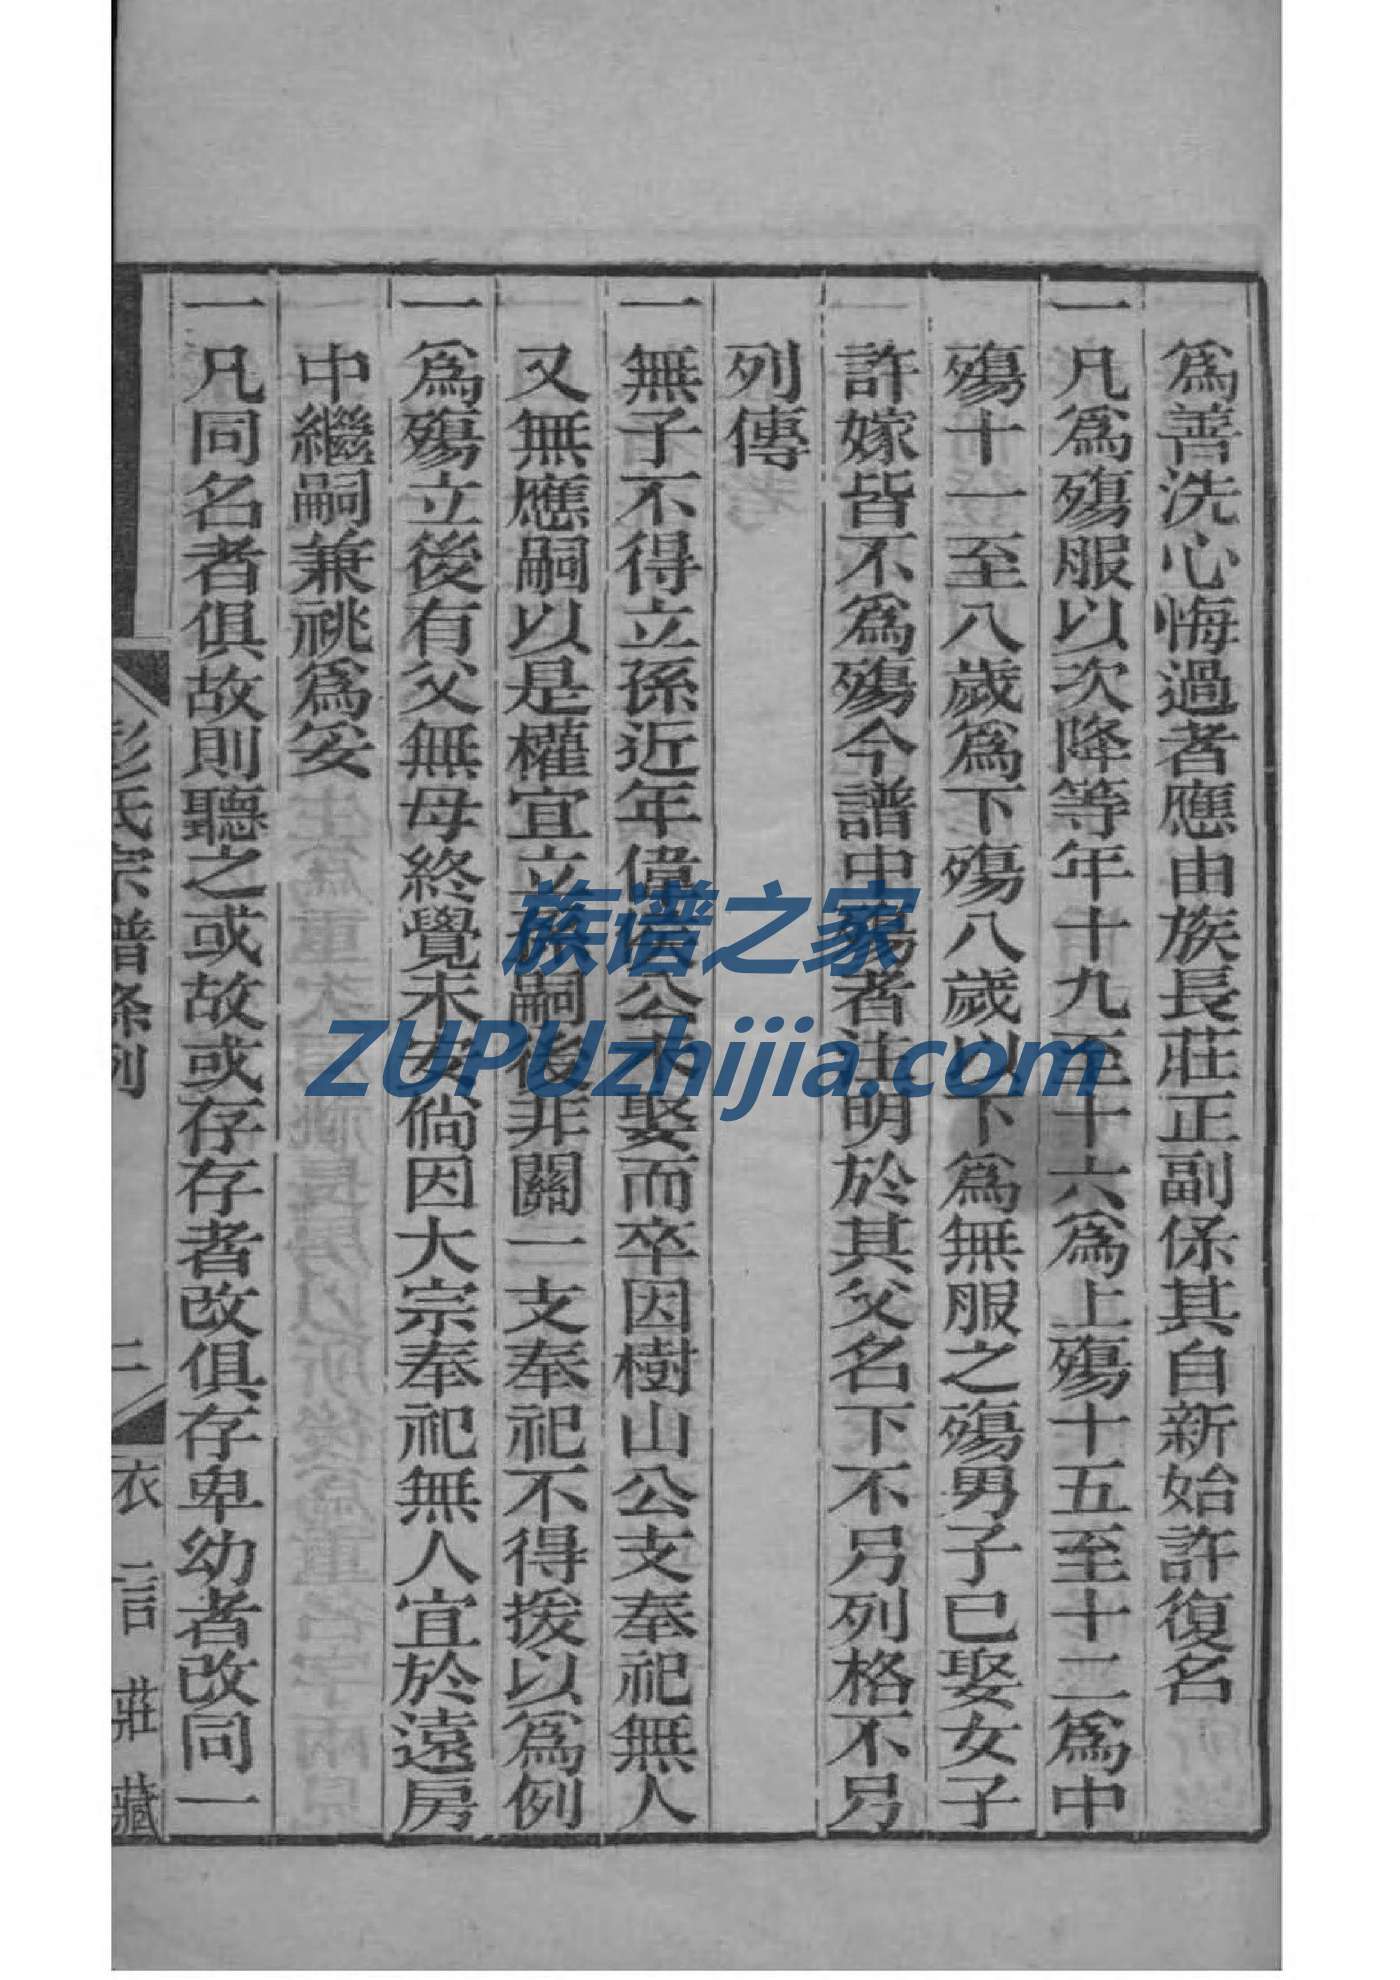 爲善洗心悔過者應由族長莊正副係其自新始許復名
一凡爲殤服以次降等年十九至十六爲上殤十五至十二爲中
殤十一至八歲爲下殤八歲以下爲無服之殤男子已娶女子
許嫁皆不爲殤今譜中殤者注明於其父名下不另列格不另
列傳
一無子不得立孫近年偉公未娶而卒因樹山公支奉祀無人
又無應嗣以是權宜立孫嗣後非關一支奉祀不得援以爲例
一爲殤立後有父無母終覺未安倘因大宗奉祀無人宜於遠房
中繼嗣兼祧爲妥
一凡同名者俱故則聽之或故或存存者改俱存卑幼者改同一
彭氏宗譜條列 二 衣言莊藏
族谱之家
ZUPUzhijia.com